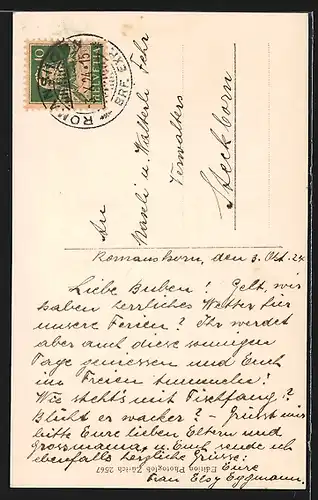 10
HELVETIA
ROMANSHORN
BRF. EXP.
An
Naseli u. Walterli Fehr
Verwalters
Steckborn
Romanshorn, den 3. Okt. 24
Liebe Buben! Gelt, wir
haben herrliches Wetter für
unsere Ferien? Ihr werdet
aber auch diese sonnigen
Tage geniessen und Euch
im Freien tummeln!
Wie steht's mit Fischfang?
Blüht er wacker? – Grüsst mir
bitte Eure lieben Eltern und
Grossmama, an Euch sende ich
ebenfalls herzliche Grüsse:
Eure
Frau Elsy Eggmann.
Edition Photoglob Zürich 2567